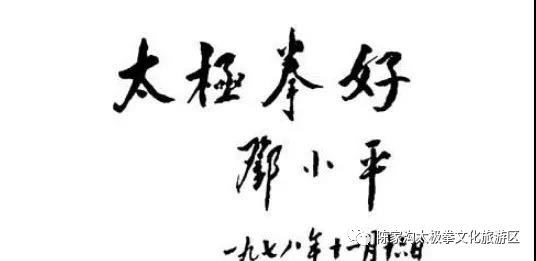 太極拳好
鄧小平
一九七八年十一月十六日
陈家沟太极拳文化旅游区